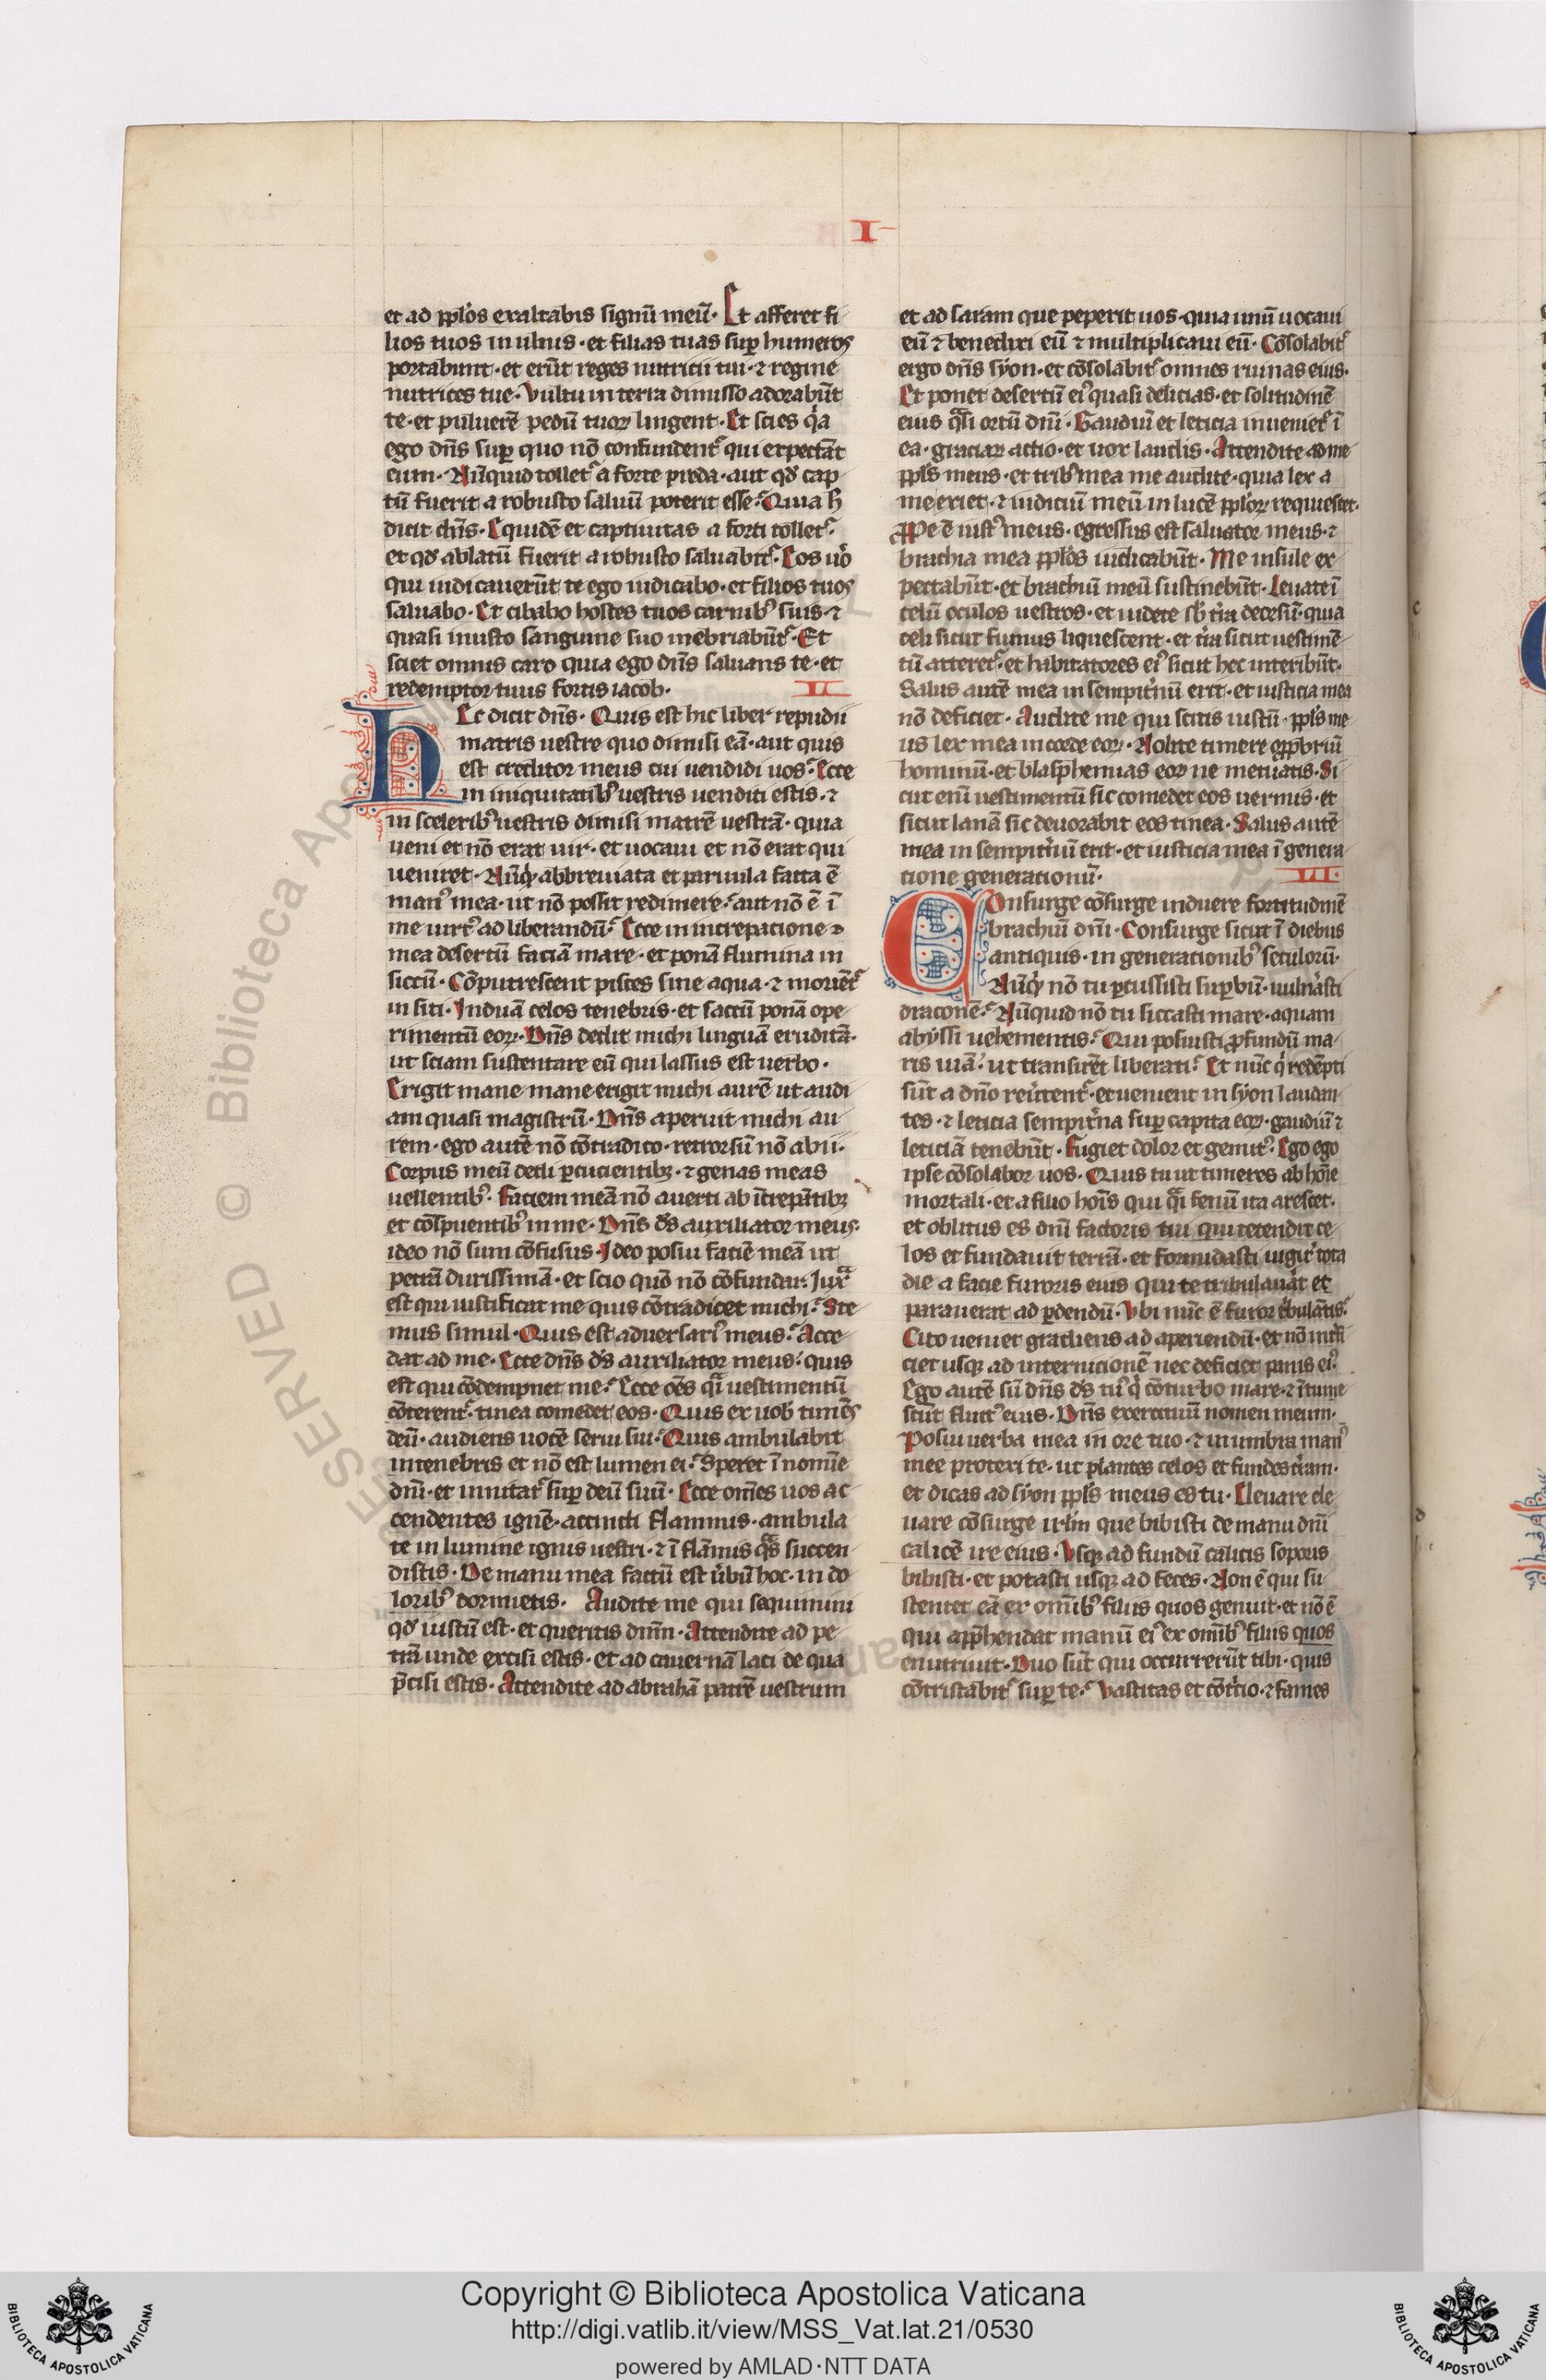 I
et ad pp̄los exaltabis signū meū· Et afferēt fi
lios tuos in ulnis· et filias tuas sup̄ humeros
portabunt· et erūt reges nutritii tui· ⁊ regine
nutrices tue· Vultu in terra dimisso adorabūt
te· et puluerē pedū tuoꝝ lingent· Et scies q̇a
ego dn̄s sup̄ quo nō confundent᷑ qui expectāt
eum· Nūquid tollet᷑ a forte preda· aut qd̄ cap
tū fuerit a robusto saluū poterit esse· Quia h̄
dicit dn̄s· Equidē et captiuitas a forti tollet᷑·
et qd̄ ablatū fuerit a robusto saluabit᷑· Eos uo̾
qui iudicauerūt te ego iudicabo· et filios tuos
saluabo· Et cibabo hostes tuos carnibꝰ suis· ⁊
quasi musto sanguine suo inebriabūt᷑· Et
sciet omnis caro quia ego dn̄s saluans te· et
redemptor tuus fortis iacob· L
Hec dicit dn̄s· Quis est hic liber repudii
matris uestre quo dimisi eā· aut quis
est creditor meus cui uendidi uos· Ecce
in iniquitatibꝰ uestris uenditi estis· ⁊
in sceleribꝰ uestris dimisi matrē uestrā· quia
ueni et nō erat uir· et uocaui et nō erat qui
ueniret· Nūq̇d abbreuiata et paruula facta ē
manꝰ mea· ut nō possit redimere· aut nō ē ī
me uirtꝰ ad liberandū· Ecce in increpatione
mea desertū faciā mare· et ponā flumina in
siccū· Cōputrescent pisces sine aqua· ⁊ moriēt᷑
in siti· Induā celos tenebris· et saccū ponā ope
rimentū eoꝝ· Dn̄s dedit michi linguā eruditā·
ut sciam sustentare eū qui lassus est uerbo·
Erigit mane mane erigit michi aurē ut audi
am quasi magistrū· Dn̄s aperuit michi au
rem· ego autē nō cōtradico· retrorsū nō abii·
Corpus meū dedi ꝑcutientibꝫ· ⁊ genas meas
uellentibꝰ· Faciem meā nō auerti ab īcrepātibꝫ
et cōspuentibꝰ in me· Dn̄s ds̄ auxiliator meus·
ideo nō sum cōfusus· Ideo posui faciē meā ut
petrā durissimā· et scio quō nō cōfundar· Iuxᵃ
est qui iustificat me quis cōtradicet michi· Ste
mus simul· Quis est aduersariꝰ meus· Acce
dat ad me· Ecce dn̄s ds̄ auxiliator meus· quis
est qui cōdempnet me· Ecce oēs qᷓi uestimentū
cōterent᷑· tinea comedet eos· Quis ex uob̄ timēs
deū· audiens uocē serui sui· Quis ambulabit
in tenebris et nō est lumen ei· Speret ī nomīe
dn̄i· et innitat᷑ sup̄ deū suū· Ecce om̄es uos ac
cendentes ignē· accincti flammis· ambula
te in lumine ignis uestri· ⁊ ī flāmis qᷓs succen
distis· De manu mea factū est u̾bū hoc· in do
loribꝰ dormietis· Audite me qui sequimini
qd̄ iustū est· et queritis dn̄m· Attendite ad pe
trā unde excisi estis· et ad cauernā laci de qua
p̄cisi estis· Attendite ad abrahā patrē uestrum
et ad saram que peperit uos· quia unū uocaui
eū ⁊ benedixi eū ⁊ multiplicaui eū· Cōsolabit᷑
ergo dn̄s syon· et cōsolabit᷑ omnes ruinas eius·
Et ponet desertū eiꝰ quasi delicias· et solitudinē
eius qᷓsi ortū dn̄i· Gaudiū et leticia inueniet᷑ ī
ea· graciaꝝ actio· et uox laudis· Attendite ad me
ppl̄s meus· et tribꝰ mea me audite· quia lex a
me exiet· ⁊ iudiciū meū in lucē pplo̾ꝝ requiescet·
Ꝓpe ē iustꝰ meus· egressus est saluator meus· ⁊
brachia mea pplo̾s iudicabūt· Me insule ex
pectabūt· et brachiū meū sustinebūt· Leuate ī
celū oculos uestros· et uidete sb̄ t̾ra deorsū· quia
celi sicut fumus liquescent· et t̾ra sicut uestimē
tū atteret᷑· et habitatores eiꝰ sicut hec interibūt·
Salus autē mea in sempit̾nū erit· et iusticia mea
nō deficiet· Audite me qui scitis iustū· ppl̄s me
us lex mea in corde eoꝝ· Nolite timere opp̄briū
hominū· et blasphemias eoꝝ ne metuatis· Si
cut enī uestimentū sic comedet eos uermis· et
sicut lanā sic deuorabit eos tinea· Salus autē
mea in sempit̾nū erit· et iusticia mea ī genera
tione generationū· LI·
Consurge cōsurge induere fortitudinē
brachiū dn̄i· Consurge sicut ī diebus
antiquis· in generationibꝰ seculorū·
Nūq̇d nō tu ꝑcussisti suꝑbū· uuln̾asti
draconē· Nūquid nō tu siccasti mare· aquam
abyssi uehementis· Qui posuisti ꝓfundū ma
ris uiā· ut transirēt liberati· Et nūc q̇ redēpti
sūt a dn̄o reu̾tent᷑· et uenient in syon laudan
tes· ⁊ leticia sempit̾na sup̄ capita eoꝝ· gaudiū ⁊
leticiā tenebūt· Fugiet dolor et gemitꝰ· Ego ego
ipse cōsolabor uos· Quis tu ut timeres ab hoīe
mortali· et a filio hoīs qui qᷓi fenū ita arescet·
et oblitus es dn̄i factoris tui qui tetendit ce
los et fundauit terrā· et formidasti iugit̾ tota
die a facie furoris eius qui te tribulauāt et
parauerat ad ꝑdendū· Vbi nūc ē furor t̾bulātis·
Cito ueniet gradiens ad aperiendū· et nō int̾fi
ciet usqꝫ ad internicionē nec deficiet panis eiꝰ·
Ego autē sū dn̄s ds̄ tuꝰ q̇ cōturbo mare· ⁊ ītume
scūt fluctꝰ eius· Dn̄s exercituū nomen meum·
Posui uerba mea in ore tuo· ⁊ in umbra manꝰ
mee protexi te· ut plantes celos et fundes t̾ram·
et dicas ad syon ppl̄s meus es tu· Eleuare ele
uare cōsurge irl̄m que bibisti de manu dn̄i
calicē ire eius· Vsqꝫ ad fundū calicis soporis
bibisti· et potasti usqꝫ ad feces· Non ē qui su
stentet eā ex om̄ibꝰ filiis quos genuit· et nō ē
qui app̄hendat manū eiꝰ ex om̄ibꝰ filiis quos
enutriuit· Duo sūt qui occurrerūt tibi· quis
cōtristabit᷑ sup̄ te· Vastitas et cōt̾tio· ⁊ fames
Copyright © Biblioteca Apostolica Vaticana
http://digi.vatlib.it/view/MSS_Vat.lat.21/0530
powered by AMLAD·NTT DATA
BIBLIOTECA APOSTOLICA VATICANA
BIBLIOTECA APOSTOLICA VATICANA